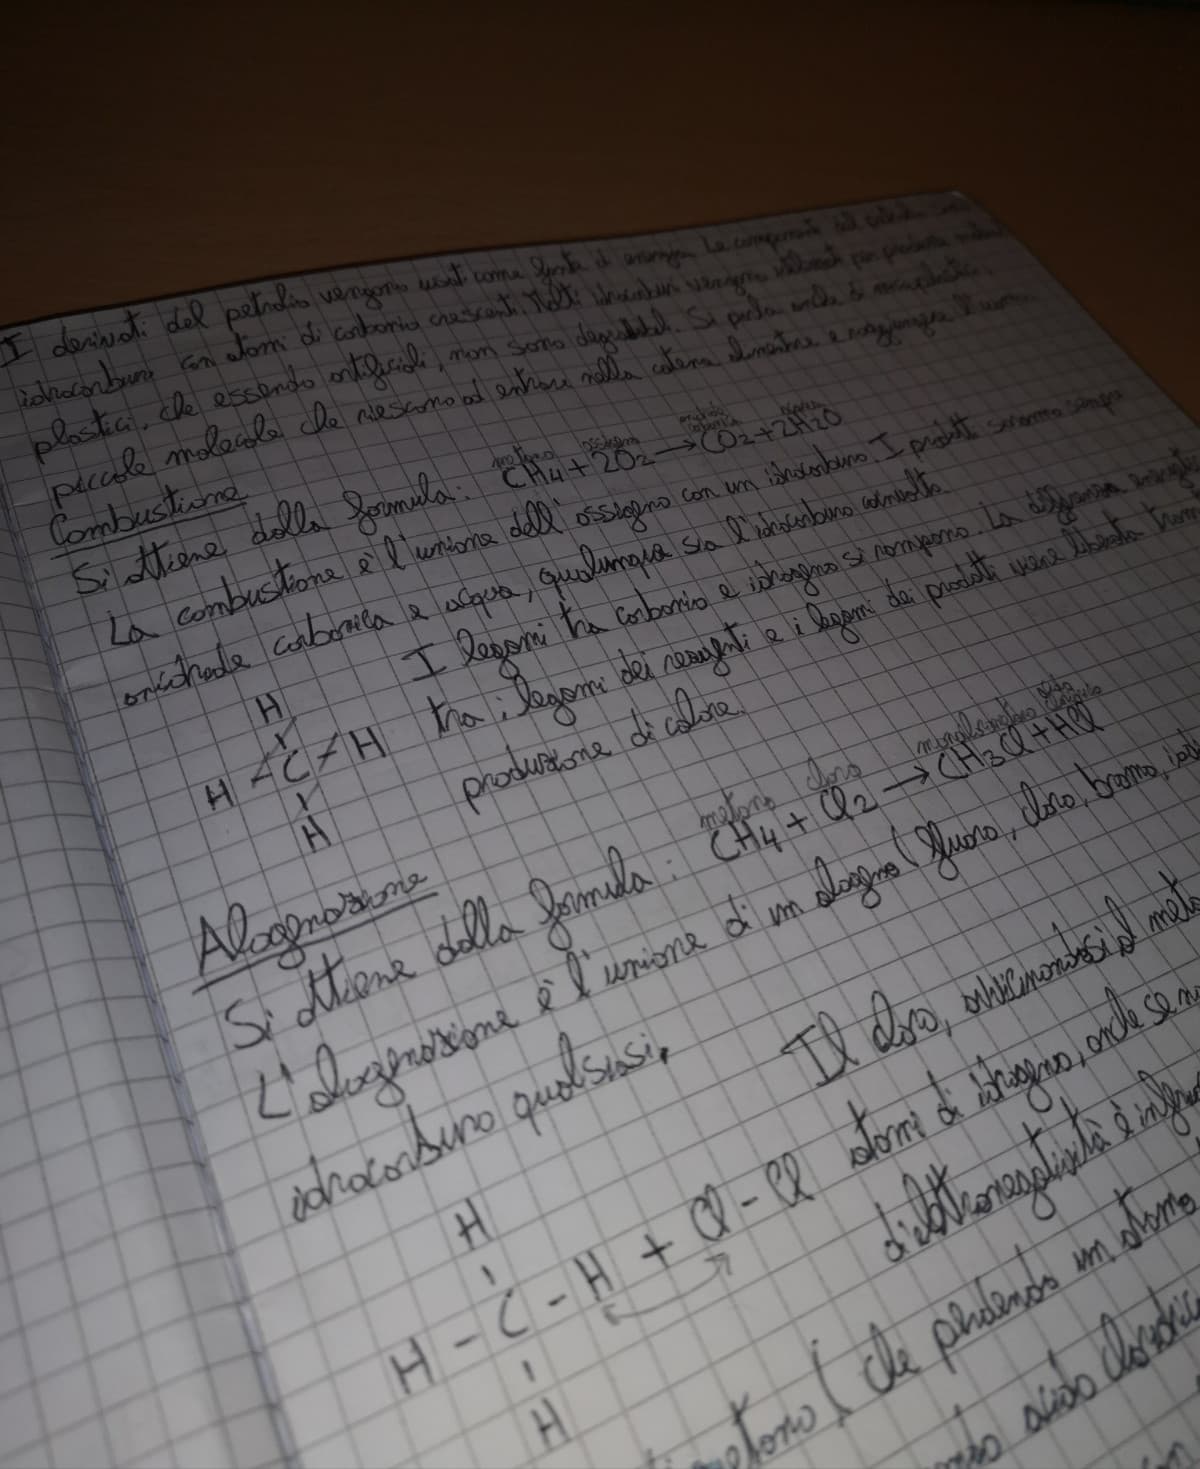 I derivati del petrolio vengono usati come fonte di energia. Le componenti del petrolio sono
idrocarburi con atomi di carbonio crescenti. Molti idrocarburi vengono utilizzati per produrre materiali
plastici, che essendo artificiali, non sono degradabili. Si parla anche di microplastiche,
piccole molecole che riescono ad entrare nella catena alimentare e raggiungere l'uomo.
Combustione
metano ossigeno anidride carbonica acqua
Si ottiene dalla formula: CH4 + 2O2 → CO2 + 2H2O
La combustione è l'unione dell'ossigeno con un idrocarburo. I prodotti saranno sempre
anidride carbonica e acqua, qualunque sia l'idrocarburo coinvolto.
I legami tra carbonio e idrogeno si rompono. La differenza
tra i legami dei reagenti e i legami dei prodotti viene liberata
produzione di calore.
H
H C H
H
Alogenazione
metano cloro monoclorometano acido cloridrico
Si ottiene dalla formula: CH4 + Cl2 → CH3Cl + HCl
L'alogenazione è l'unione di un alogeno (fluoro, cloro, bromo,
idrocarburo qualsiasi.
Il cloro, avvicinandosi al
atomi di idrogeno, anche se
di elettronegatività è
H
H - C - H + Cl - Cl
H
(che perdendo un atomo
acido